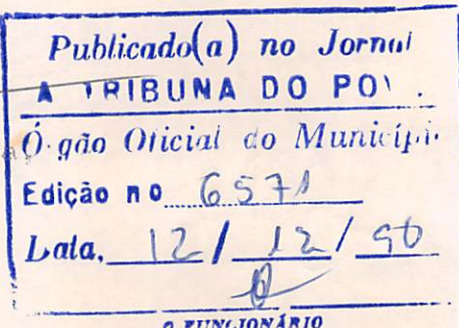 Publicado(a) no Jornal
A TRIBUNA DO POV.
Órgão Oficial do Municípi.
Edição no 6571
Data, 12 / 12 / 90
O FUNCIONÁRIO